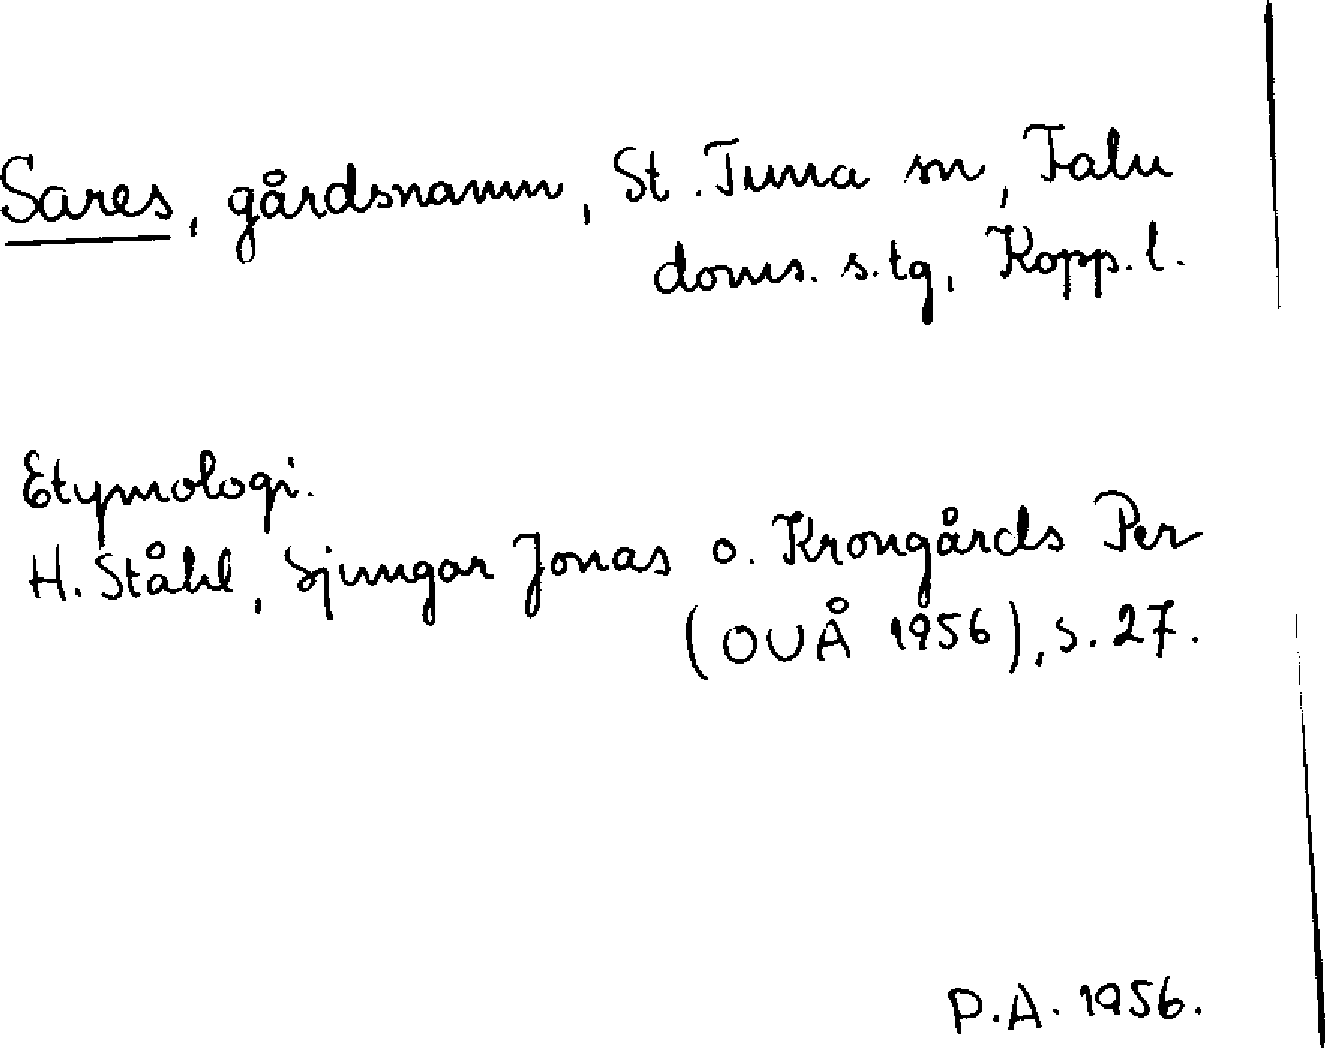 Sares, gårdsnamn, St. Tuna sn, Falu
doms. s.tg, Kopp. l.
Etymologi.
H. Ståhl, Sjungar Jonas o. Krongårds Per
(OUÅ 1956), s. 27.
P.A. 1956.